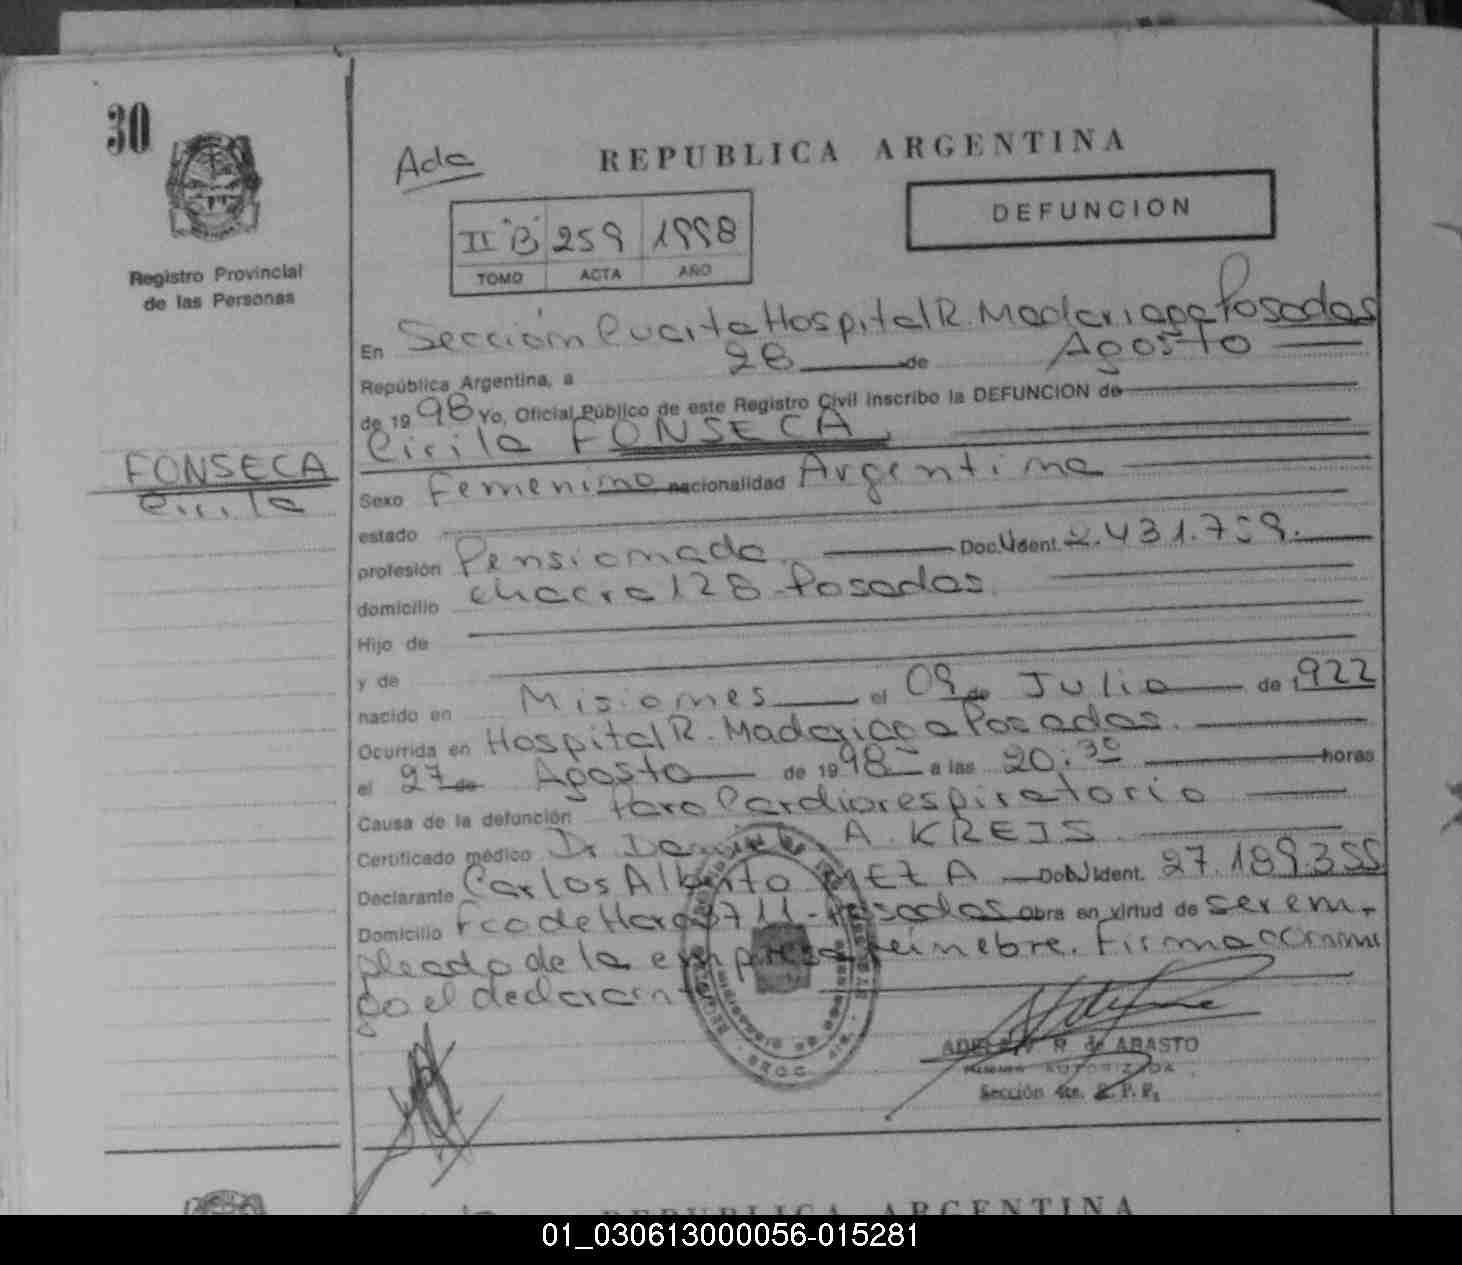 30
Registro Provincial
de las Personas
FONSECA
Cirila
REPUBLICA ARGENTINA
DEFUNCION
II "B" 259 1998
TOMO ACTA AÑO
En Sección Cuarta Hospital R. Madariaga Posadas
República Argentina, a 28 de Agosto
de 1998 Yo, Oficial Público de este Registro Civil inscribo la DEFUNCION de
Cirila FONSECA
Sexo Femenino nacionalidad Argentina
estado
profesión Pensionada Doc. Ident. 2.431.759.
domicilio chacra 128 - Posadas.
Hijo de
y de
nacido en Misiones el 09 de Julio de 1922
Ocurrida en Hospital R. Madariaga Posadas.
el 27 de Agosto de 1998 a las 20:30 horas
Causa de la defunción Paro Cardiorespiratorio
Certificado médico Dr Daniel A. KREIS
Declarante Carlos Alberto MEZA Doc. Ident. 27.189.355
Domicilio Fco de Haro 3711 - Posadas obra en virtud de ser em-
pleado de la empresa fúnebre. Firma conmi
go el declarante
ADELA R de ABASTO
AUTORIZADA
Sección 4ta. R. P. P.
REPUBLICA ARGENTINA
01_030613000056-015281